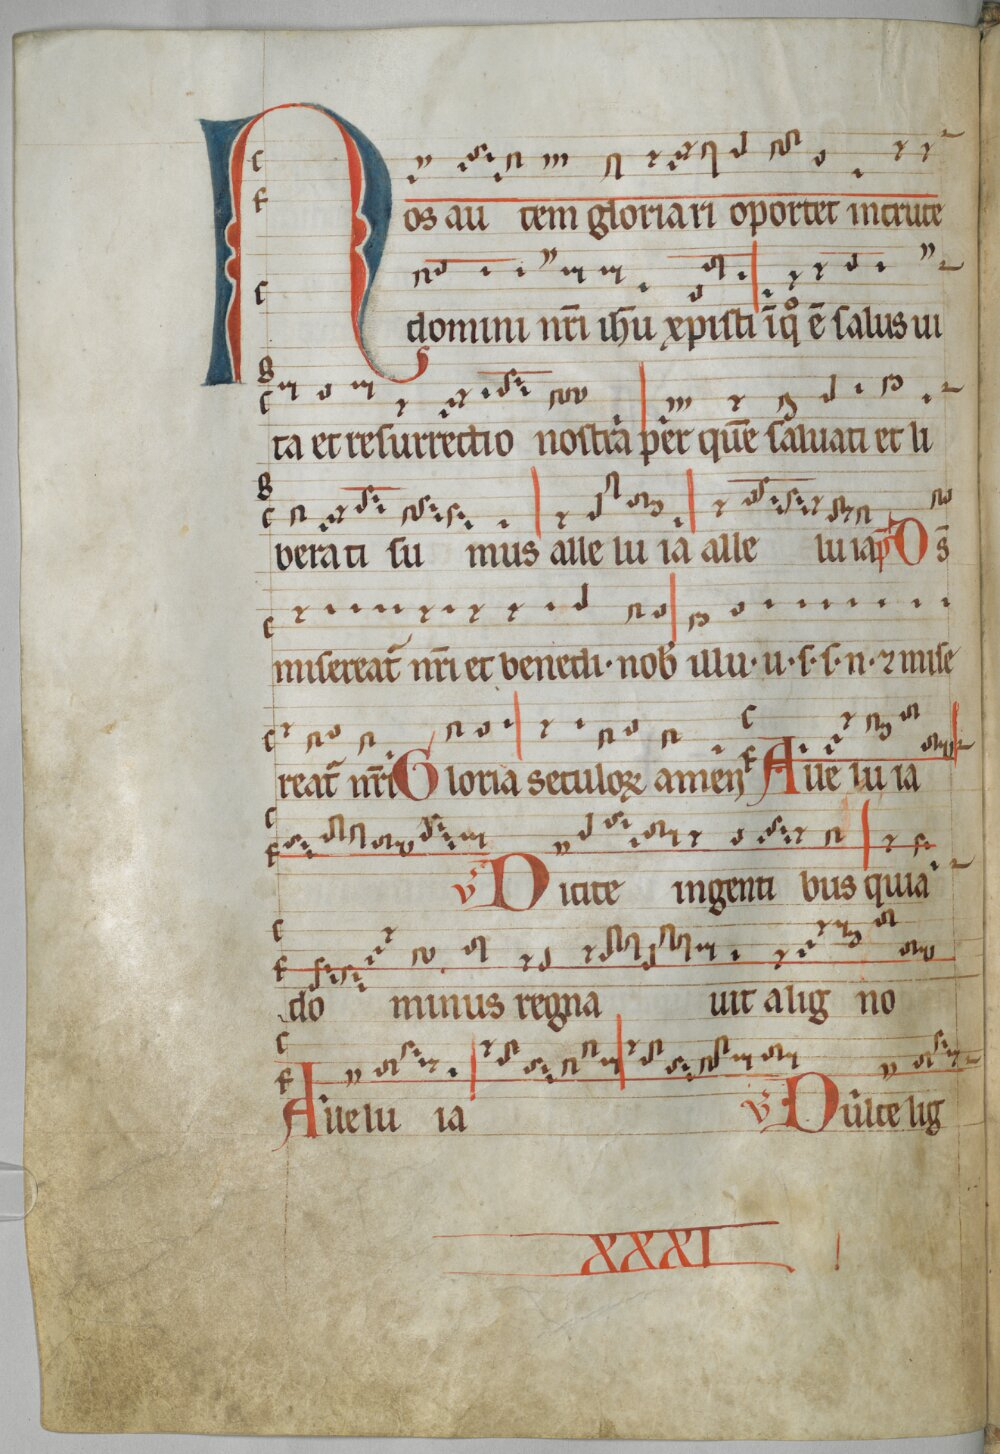 Nos au tem gloriari oportet incruce
domini nr̄i ih̄u xp̄isti īq̊ ē salus ui
ta et resurrectio nostra per quē saluati et li
berati su mus alle lu ia alle lu ia p̄ Os̄
misereat᷑ nr̄i et benedi· nob̄ illu· u· s· s· n· ⁊ mise
reat᷑ nr̄i Gloria seculoꝝ amen Alle lu ia
℣ Dicite ingenti bus quia
do minus regna uit alig no
Alle lu ia ℣ Dulce lig
XXXI